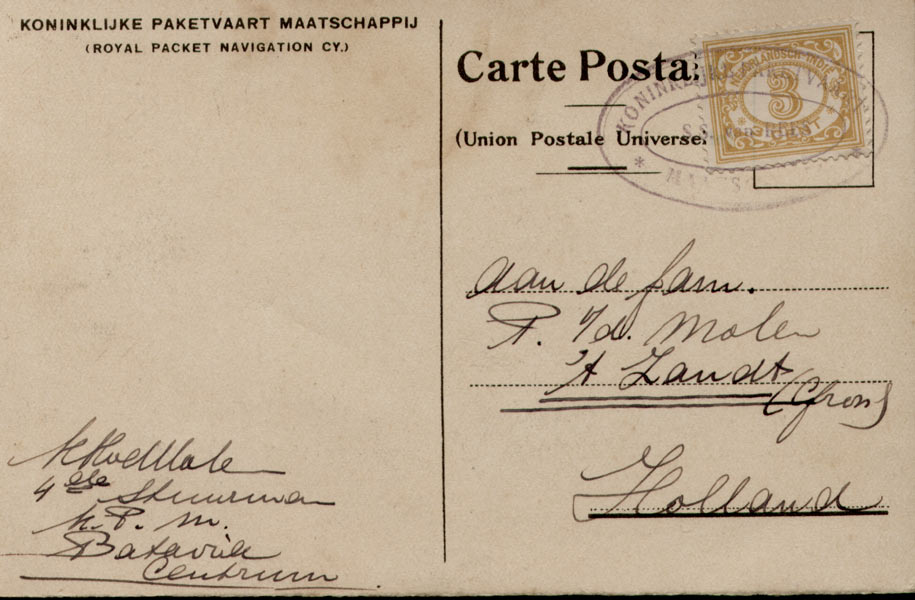 KONINKLIJKE PAKETVAART MAATSCHAPPIJ
(ROYAL PACKET NAVIGATION CY.)
Carte Posta
(Union Postale Universe
NEDERLANDSCH-INDIË
3
CENT
KONINKLIJKE PAKETVAART
S.S. van
MAATS
aan de fam.
P. v/d. Molen
't Zandt
(Gron)
Holland
4de Stuurman
K. P. M.
Batavia
Centrum